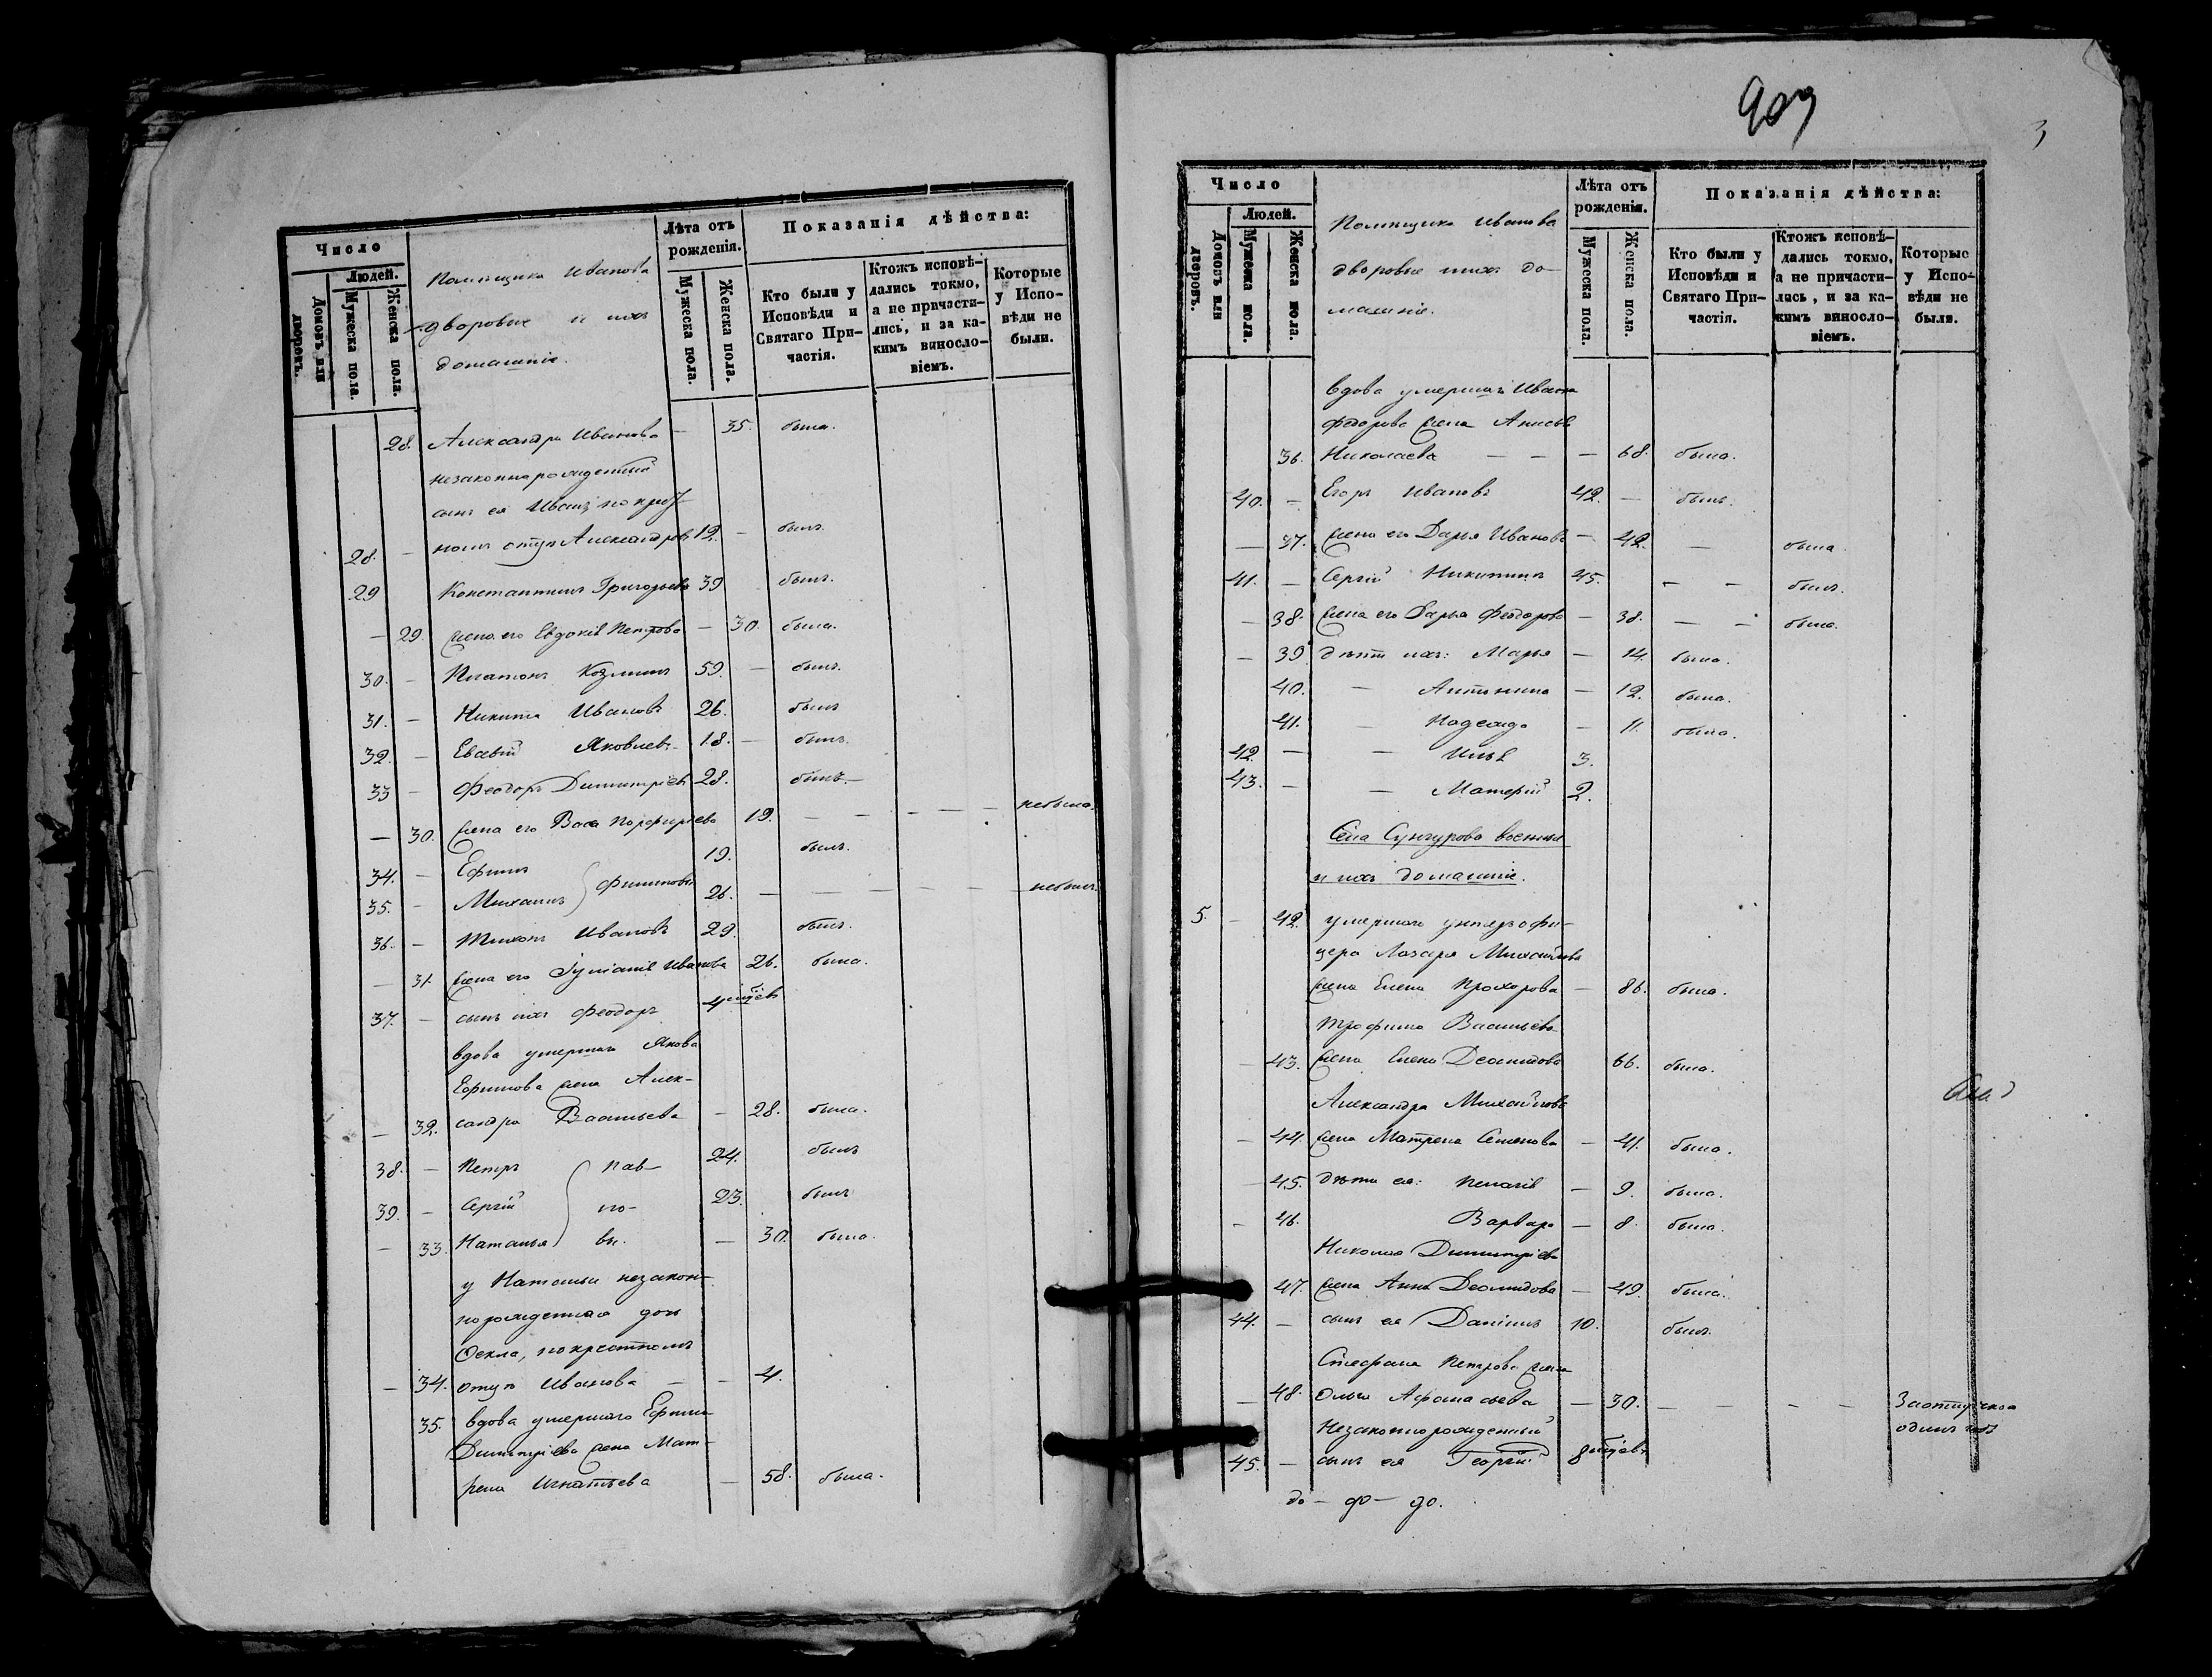 Число
Людей.
Домовъ или дворовъ.
Мужеска пола.
Женска пола.
Помѣщика Иванова
дворовые и ихъ
домашніе.
Лѣта отъ рожденія.
Мужеска пола.
Женска пола.
Показанія дѣйства:
Кто были у Исповѣди и Святаго При-частія.
Ктожъ исповѣ-дались токмо, а не причасти-лись, и за ка-кимъ винослo-віемъ.
Которые у Испо-вѣди не были.
28. Александра Иванова — 35. была.
незаконнорожденный
сынъ ея Иванъ по крест-
28. — номъ отцѣ Александровъ 12. — былъ.
29 Константинъ Григорьевъ 39 былъ.
— 29. жена его Евдокія Петрова — 30. была.
30. — Платонъ Козминъ 59. — былъ.
31. — Никита Ивановъ 26. былъ
32. — Евсевій Яковлевъ 18. — былъ.
33 — Феодоръ Димитріевъ 28. былъ. —
— 30. жена его Васса Порфирьева 19. — — — — — небыла.
34. — Ефимъ 19. былъ.
35. — Михаилъ } Филиповы 26. — — — — — небылъ.
36. — Тихонъ Ивановъ 29. былъ.
— 31. жена его Іуліанія Иванова 26. была.
37. — сынъ ихъ Феодоръ 4 мѣсяцевъ
вдова умершаго Якова
Ефимова жена Алек-
— 32. сандра Васильева — 28. была.
38. — Петръ } Пав- 24. былъ
39. — Сергій } ло- 23. былъ
— 33. Наталья } вы. — 30. была.
у Натальи незакон-
норожденная дочь
Фекла, по крестномъ
— 34. отцѣ Иванова — — 4.
35. вдова умершаго Ефима
Димитріева жена Мат-
рена Игнатьева — 58. была.
909
3
Число
Людей.
Домовъ или дворовъ.
Мужеска пола.
Женска пола.
Помѣщика Иванова
дворовые и ихъ до-
машніе.
Лѣта отъ рожденія.
Мужеска пола.
Женска пола.
Показанія дѣйства:
Кто были у Исповѣди и Святаго При-частія.
Ктожъ исповѣ-дались токмо, а не причасти-лись, и за ка-кимъ винослo-віемъ.
Которые у Испо-вѣди не были.
вдова умершаго Ивана
Федорова жена Анисья
36. Николаева — — — 68. была.
40. — Егоръ Ивановъ 42. — былъ.
— 37. жена его Дарья Иванова — 42. — была.
41. — Сергій Никитинъ 45. — — былъ.
— 38. жена его Дарья Феодорова — 38. — — была.
— 39 дѣти ихъ: Марья — 14. была.
40. — Антонина — 12. была.
41. — Надежда — 11. была.
42. — — Илья 3.
43. — — 2.
Села Сунгурова военные
и ихъ домашніе.
5. — 42. умершаго унтерофи-
цера Лазаря Михайлова
жена Елена Прохорова — 86. была.
Трофима Васильева
— 43. жена Елена Деомидова 66. была.
Александра Михайлова
— 44. жена Матрена Семенова — 41. была.
45. дѣти ея: Пелагія — 9. была.
— 46. Варвара — 8. была.
Николая Димитріева
47. жена Анна Деомидова — 49. была.
44. — сынъ ея Даніилъ 10. былъ.
Стефана Петрова жена
— 48. Ольга Афанасьева — 30. — — — — За отлучкою
Незаконнорожденный одинъ годъ
45. — сынъ ея Георгій 8 мѣсяцевъ